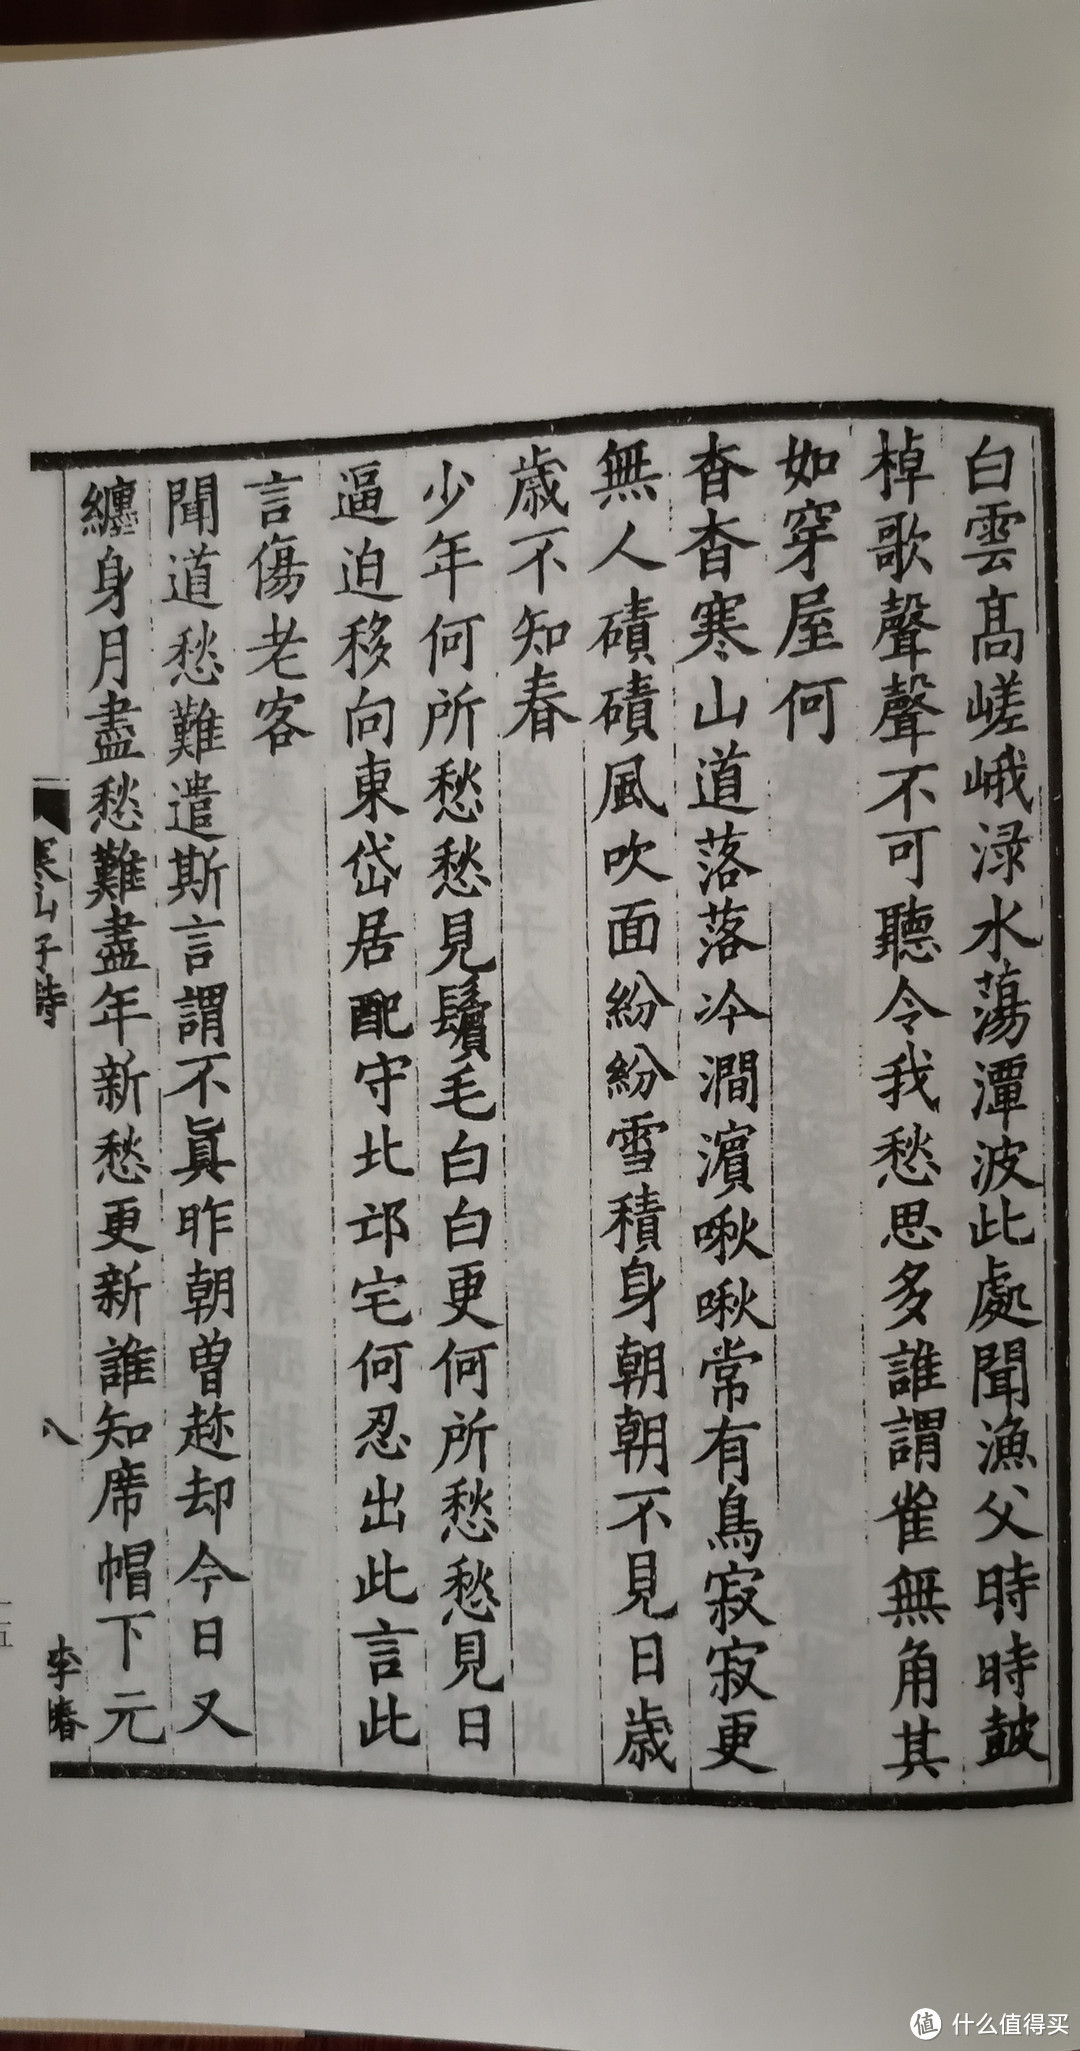 白雲高嵯峨渌水蕩潭波此處聞漁父時時鼓
棹歌聲聲不可聽令我愁思多誰謂雀無角其
如穿屋何
杳杳寒山道落落冷澗濵啾啾常有鳥寂寂更
無人磧磧風吹面紛紛雪積身朝朝不見日歳
歳不知春
少年何所愁愁見鬢毛白白更何所愁愁見日
逼迫移向東岱居配守北邙宅何忍出此言此
言傷老客
聞道愁難遣斯言謂不真昨朝曽趂却今日又
纏身月盡愁難盡年新愁更新誰知席帽下元
寒山子詩
八
李春
一五
值 什么值得买